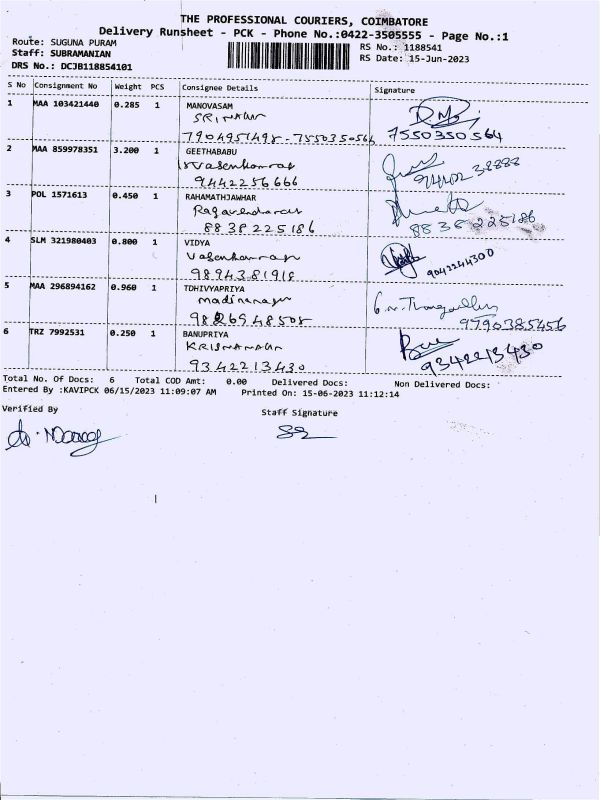 THE PROFESSIONAL COURIERS, COIMBATORE
Delivery Runsheet - PCK - Phone No.:0422-3505555 - Page No.:1
Route: SUGUNA PURAM RS No.: 1188541
Staff: SUBRAMANIAN RS Date: 15-Jun-2023
DRS No.: DCJB118854101
S No Consignment No Weight PCS Consignee Details Signature
1 MAA 103421440 0.285 1 MANOVASAM
SRINAGAR
7904951498 - 7550350564 7550350564
2 MAA 859978351 3.200 1 GEETHABABU
9442256666
3 POL 1571613 0.450 1 RAHAMATHJAWHAR
8838225186 8838225186
4 SLM 321980403 0.800 1 VIDYA
9894381918 9042244300
5 MAA 296894162 0.960 1 TDHIVYAPRIYA
madinanagar
9790385456
6 TRZ 7992531 0.250 1 BANUPRIYA
KRISHNANAGAR
9342213430 9342213430
Total No. Of Docs: 6 Total COD Amt: 0.00 Delivered Docs: Non Delivered Docs:
Entered By :KAVIPCK 06/15/2023 11:09:07 AM Printed On: 15-06-2023 11:12:14
Verified By Staff Signature